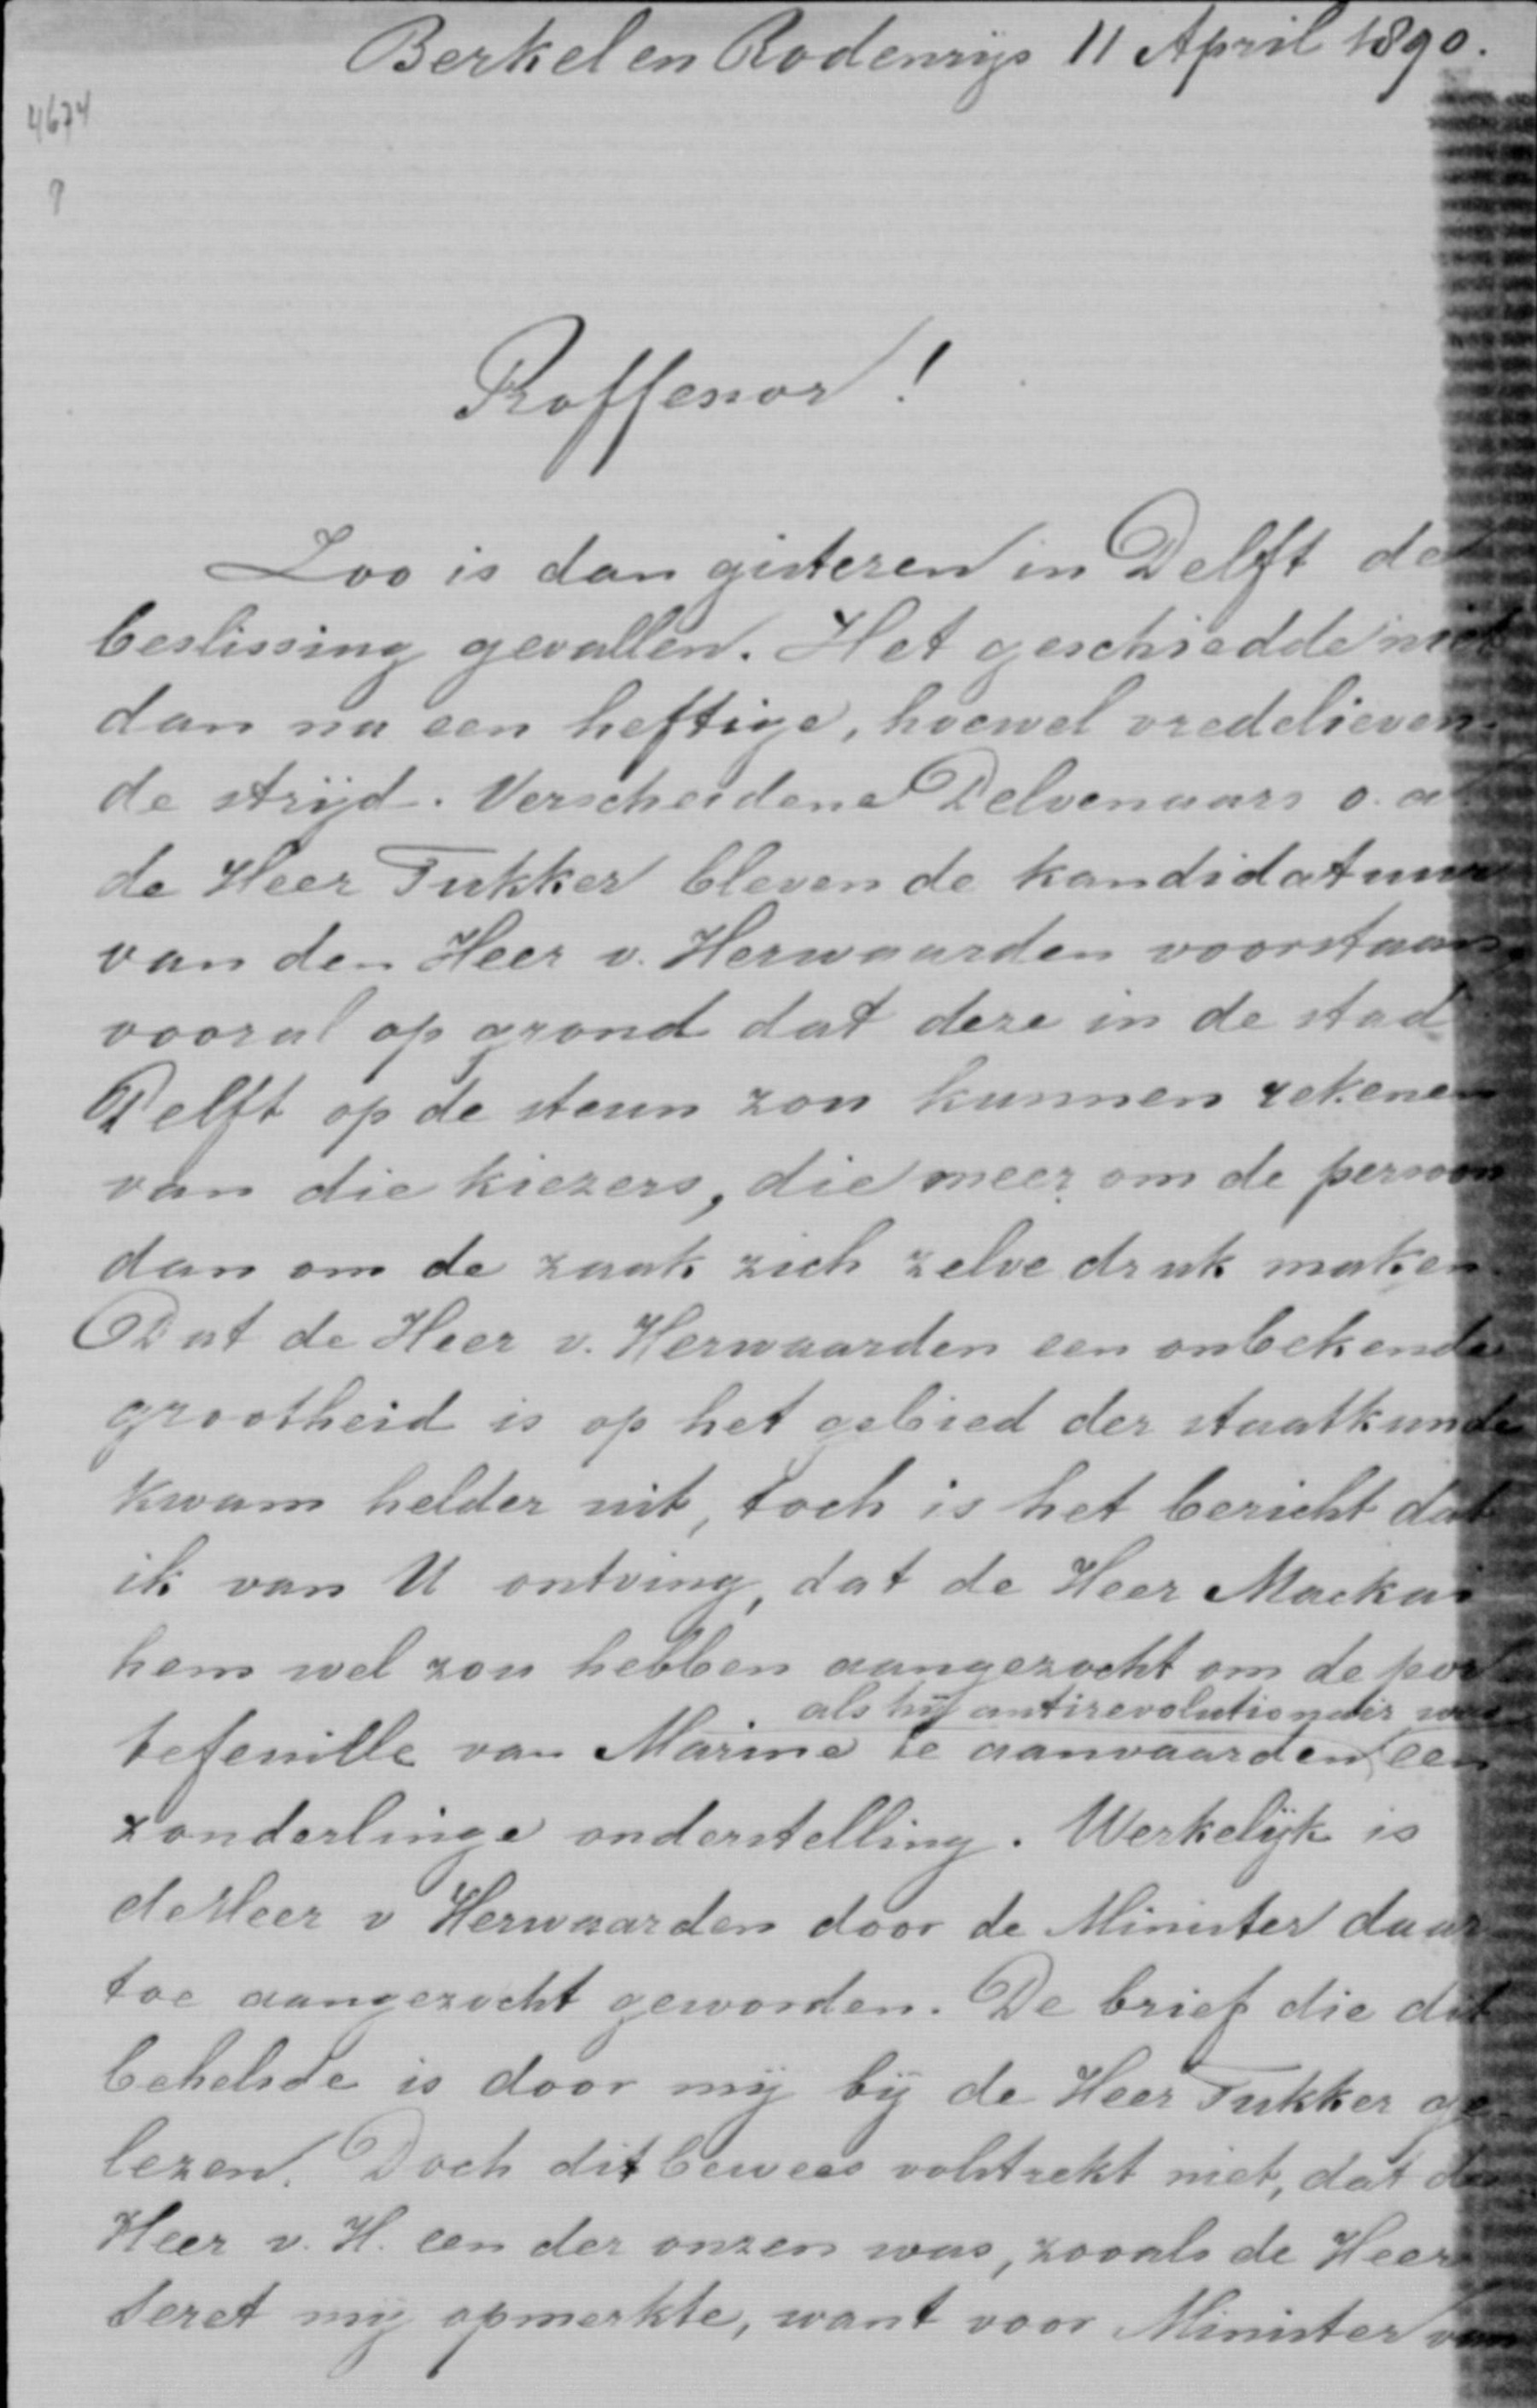 Berkel en Rodenrijs 11 April 1890.
4674
Proffessor!
Zoo is dan gisteren in Delft de
beslissing gevallen. Het geschiedde niet
dan na een heftige, hoewel vredelieven-
de strijd. Verscheidene Delvenaars o.a
de Heer Tukker bleven de kandidatuur
van den Heer v. Herwaarden voorstaan,
vooral op grond dat deze in de stad
Delft op de steun zou kunnen rekenen
van die kiezers, die meer om de persoon
dan om de zaak zich zelve druk maken.
Dat de Heer v. Herwaarden een onbekende
grootheid is op het gebied der staatkunde
kwam helder uit, toch is het bericht dat
ik van U ontving, dat de Heer Mackai
hem wel zou hebben aangezocht om de por
als hij antirevolutionair was
tefeuille van Marine te aanvaarden een
zonderlinge onderstelling. Werkelijk is
de Heer v Herwaarden door de Minister daar
toe aangezocht geworden. De brief die dit
behelsde is door mij bij de Heer Tukker ge-
lezen. Doch dit bewees volstrekt niet, dat de
Heer v. H. een der onzen was, zooals de Heer
Seret mij opmerkte, want voor Minister van